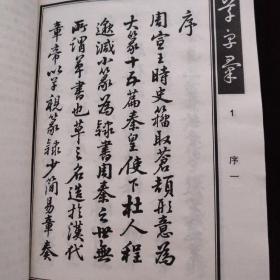 序
周宣王時史籀取蒼頡形意為
大篆十五篇秦皇使下杜人程
邈減小篆為隸書周秦之世無
所謂草書也草之名造於漢代
章帝以草視篆隸少簡易章奏
草字彙
1
序一